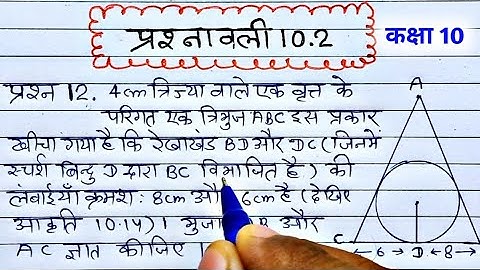 प्रश्नावली 10.2
कक्षा 10
प्रश्न 12. 4cm त्रिज्या वाले एक वृत्त के
परिगत एक त्रिभुज ABC इस प्रकार
खींचा गया है कि रेखाखंड BD और DC (जिनमें
स्पर्श बिन्दु D द्वारा BC विभाजित है) की
लंबाईयाँ क्रमशः 8cm और 6cm है (देखिए
आकृति 10.14)। भुजा AB और
AC ज्ञात कीजिए।
A
C 6 D 8